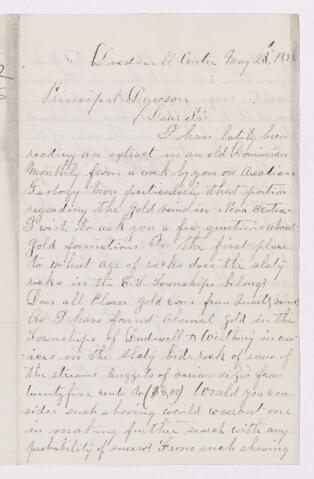 Dudswell Center May 28th 188
Principal Dawson
Dear Sir
I have latily been
reading an extract in an old Dominion
Monthly from a work by you on Acadian
Geology More particularly that portion
regarding the Gold veins in Nova Scotia
I wish to ask you a few questions about
Gold formations. In the first place
to what age of rocks does the slaty
rocks in the E.T. Townships belong?
Does all Placer gold come from Quartz veins?
As I have found Aluvial gold in the
Townships of Dudswell & Westbury in
on the slaty bed rock of some of
the streams Nuggets of various sizes from
twenty five cents to ($8.00) Would you con-
sider such showing would warant one
in making further search with any
probability of success? From such showing